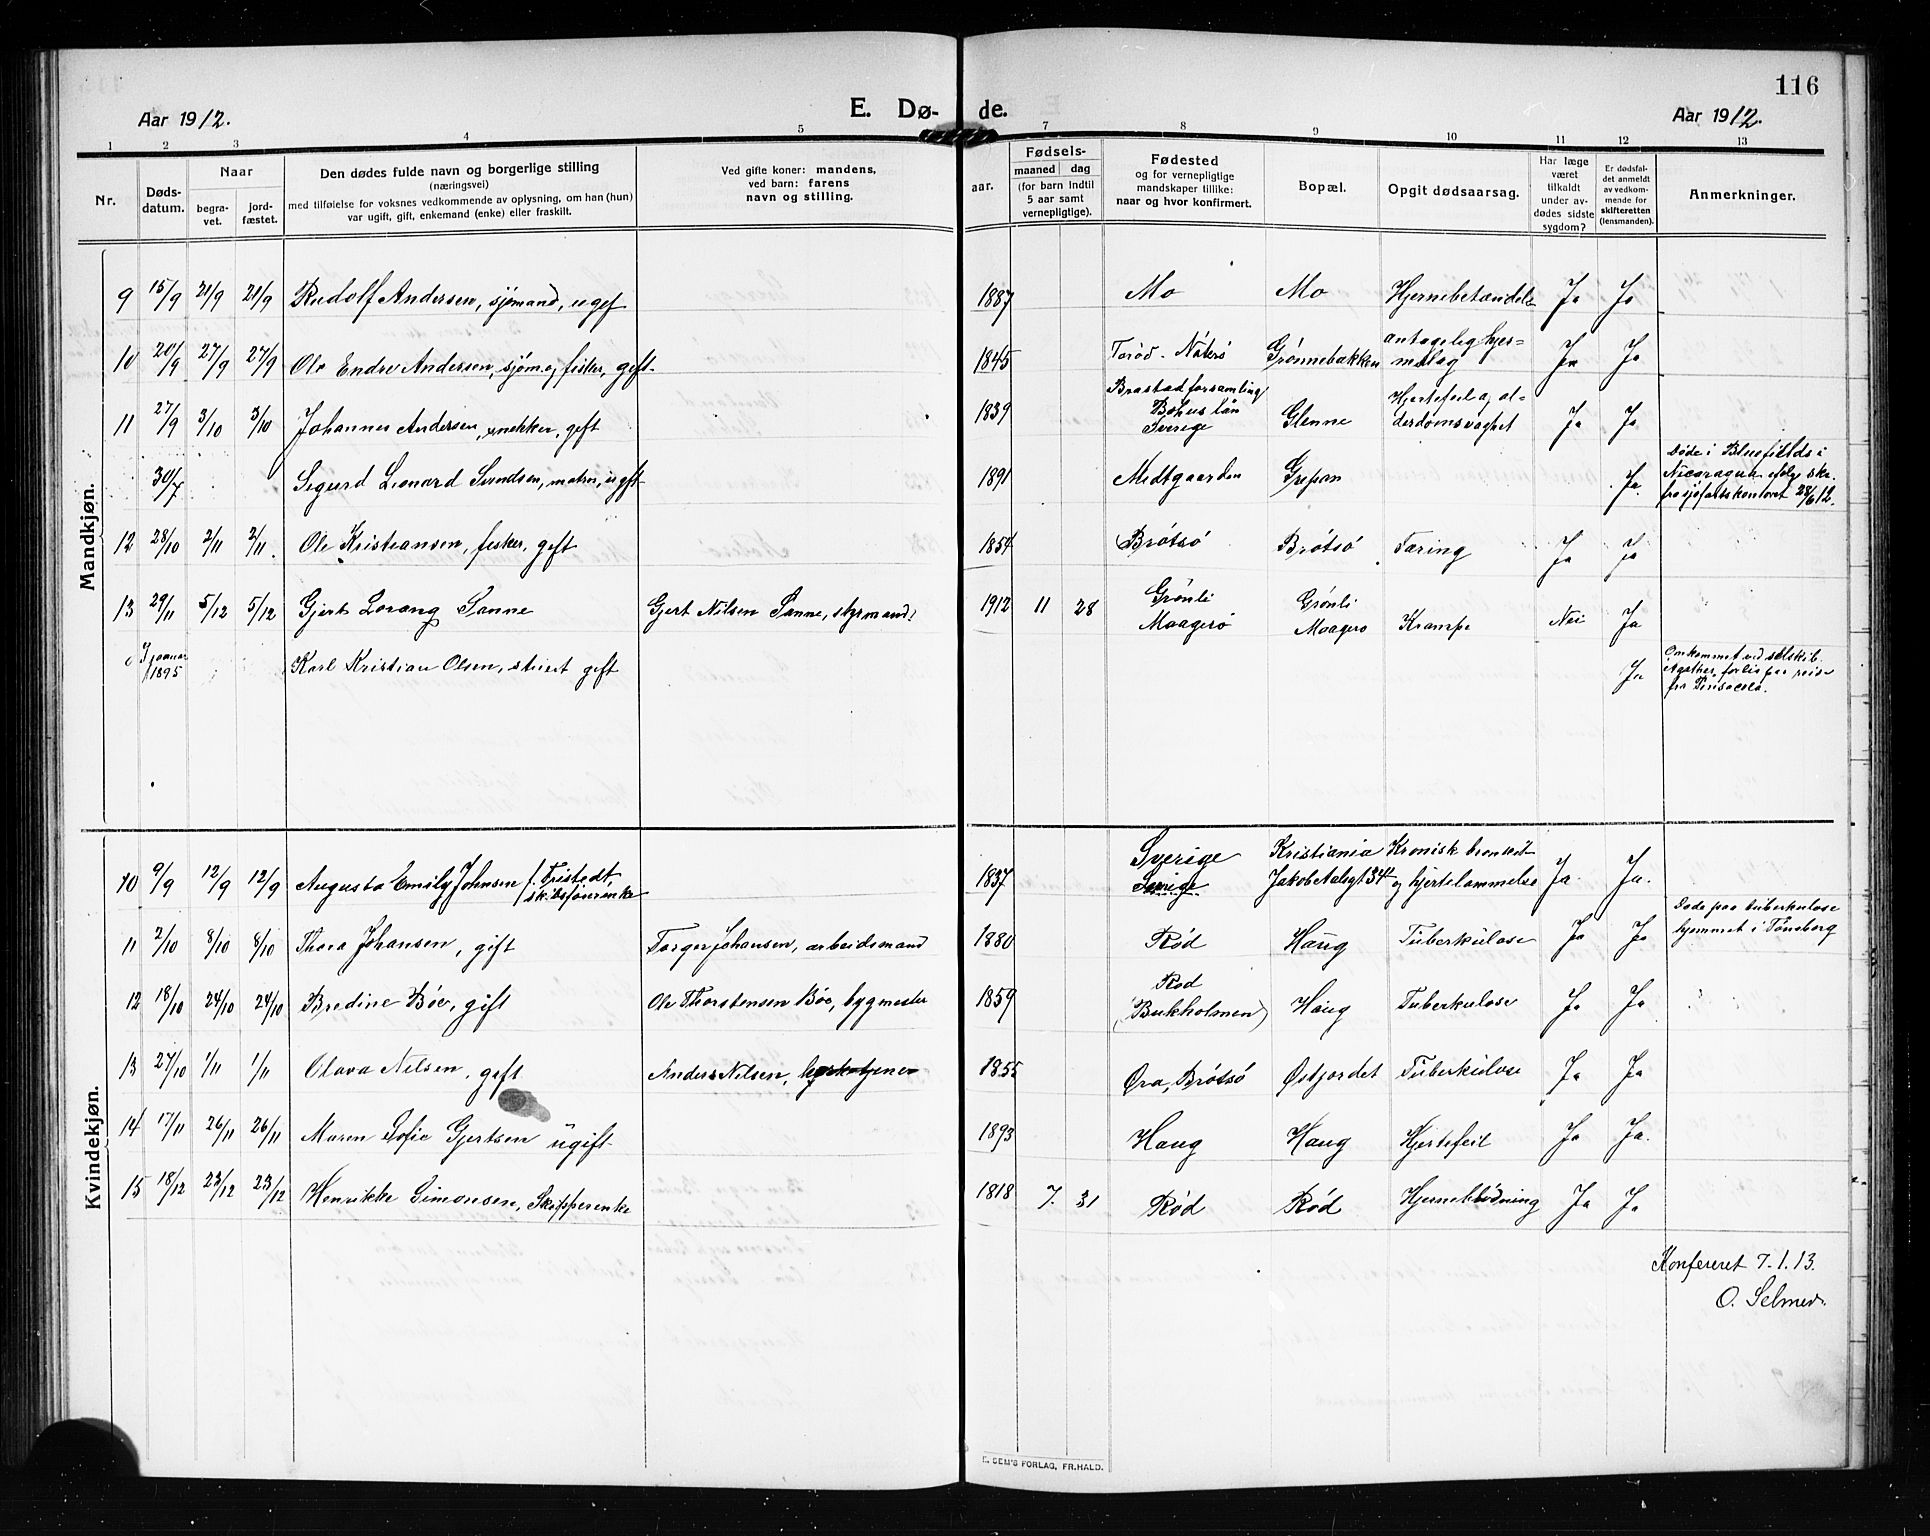 116
Aar 1912.
E. Dø- de.
Aar 1912.
1 2 3 4 5 7 8 9 10 11 12 13
Nr.
Døds-
datum.
Naar
begra-
vet.
jord-
fæstet.
Den dødes fulde navn og borgerlige stilling
(næringsvei)
med tilføielse for voksnes vedkommende av oplysning, om han (hun)
var ugift, gift, enkemand (enke) eller fraskilt.
Ved gifte koner: mandens,
ved barn: farens
navn og stilling.
aar.
Fødsels-
maaned dag
(for barn indtil
5 aar samt
vernepligtige).
Fødested
og for vernepligtige
mandskaper tillike:
naar og hvor konfirmert.
Bopæl.
Opgit dødsaarsag.
Har læge
været
tilkaldt
under av-
dødes sidste
sygdom?
Er dødsfal-
det anmeldt
av vedkom-
mende for
skifteretten
(lensmanden).
Anmerkninger.
Mandkjøn.
9 15/9 21/9 21/9 Rudolf Andersen, sjømand, ugift 1887 Mo Mo Hjernebetændelse Ja Ja
10 20/9 27/9 27/9 Ole Endre Andersen, sjøm. og fisker, gift 1845 Torød - Nøterø Grønnebakken antagelig hjer=
neslag Ja Ja
11 27/9 3/10 3/10 Johannes Andersen, snekker, gift 1839 Brastad forsamling
Bohus län
Sverige Glenne Hjertefeil og al-
derdomsvaghet Ja Ja
30/7 Sigurd Leonard Svendsen, matros, ugift 1891 Medtgaarden Grepan Ja.
Døde i Bluefields i
Nicaragua ifølge skr.
fra sjøfartskontoret 28/6 12.
12 28/10 2/11 2/11 Ole Kristiansen, fisker, gift 1854 Brøtsø Brøtsø Tæring Ja Ja
13 29/11 5/12 5/12 Gjert Lorang Sanne Gjert Nilsen Sanne, styrmand 1912 11 28 Grønli
Maagerø Grønli
Maagerø Krampe Nei Ja
I januar
1895 Karl Kristian Olsen, stuert gift Ja
Omkommet ved selskib.
Agathes forlis paa reise
fra Pensacola.
Kvindekjøn.
10 9/9 12/9 12/9 Augusta Emily Johnsen f. Fristedt
skibsførerenke 1837 Sverige
Sverige Kristiania
Jakob Aalsgt 34 Kronisk bronkit
og hjertelammelse Ja Ja.
11 2/10 8/10 8/10 Thora Johansen, gift Torger Johansen, arbeidsmand 1880 Rød Haug Tuberkulose Ja Ja
Døde paa tuberkulose
hjemmet i Tønsberg
12 18/10 24/10 24/10 Bredine Bøe, gift Ole Thorstensen Bøe, bygmester 1859 Rød
(Bukholmen) Haug Tuberkulose Ja Ja
13 27/10 1/11 1/11 Olava Nilsen, gift Anders Nilsen, 1855 Øra, Brøtsø Østjordet Tuberkulose Ja Ja
14 17/11 26/11 26/11 Maren Sofie Gjertsen ugift 1893 Haug Haug Hjertefeil Ja Ja.
15 18/12 23/12 23/12 Henrikke Simonsen, Skipperenke 1818 7. 31 Rød Rød Hjerneblødning Ja Ja
Konfereret 7.1.13.
O. Selmer.
E. SEM'S FORLAG, FR.HALD.